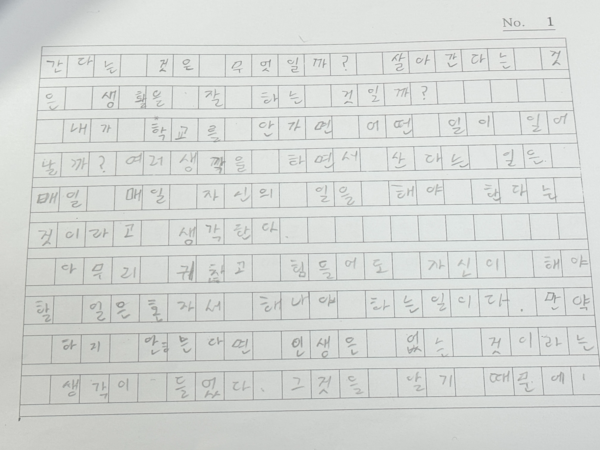 No. 1
간다는 것은 무엇일까? 살아간다는 것
은 생활을 잘 하는 것일까?
내가 학교를 안가면 어떤 일이 일어
날까? 여러 생각을 하면서 산다는 일은
매일 매일 자신의 일을 해야 한다는
것이라고 생각한다.
아무리 귀찮고 힘들어도 자신이 해야
할 일은 혼자서 해나야 하는일이다. 만약
하지 안는다면 인생은 없는 것이라는
생각이 들었다. 그것을 알기 때문에